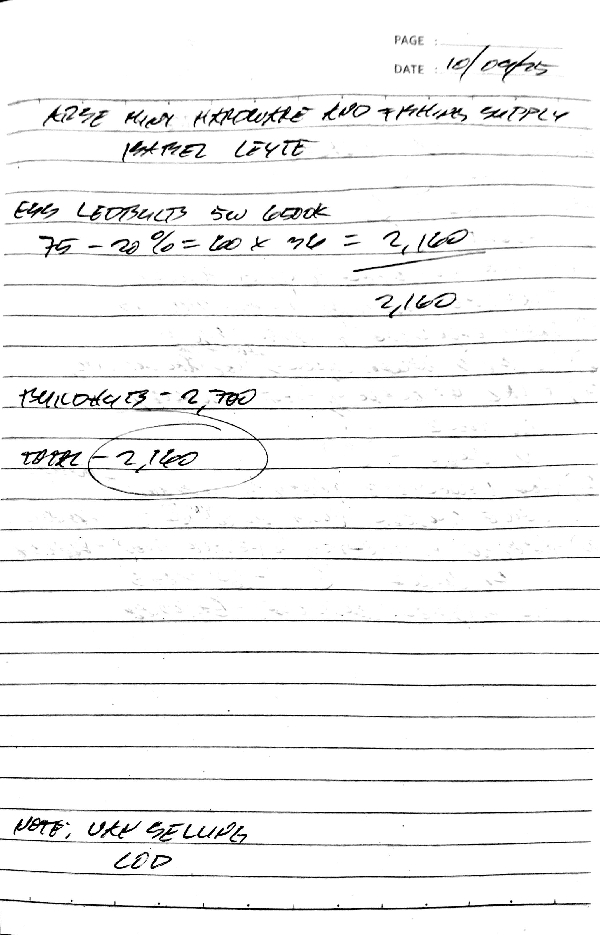 PAGE :
DATE : 10/09/25
MINI HARDWARE AND FISHING SUPPLY
ISABEL LEYTE
LEDBULB 5W 6500K
75 - 20% = 60 x 36 = 2,160
2,160
- 2,700
TOTAL - 2,160
NOTE: VAN SELLING
COD